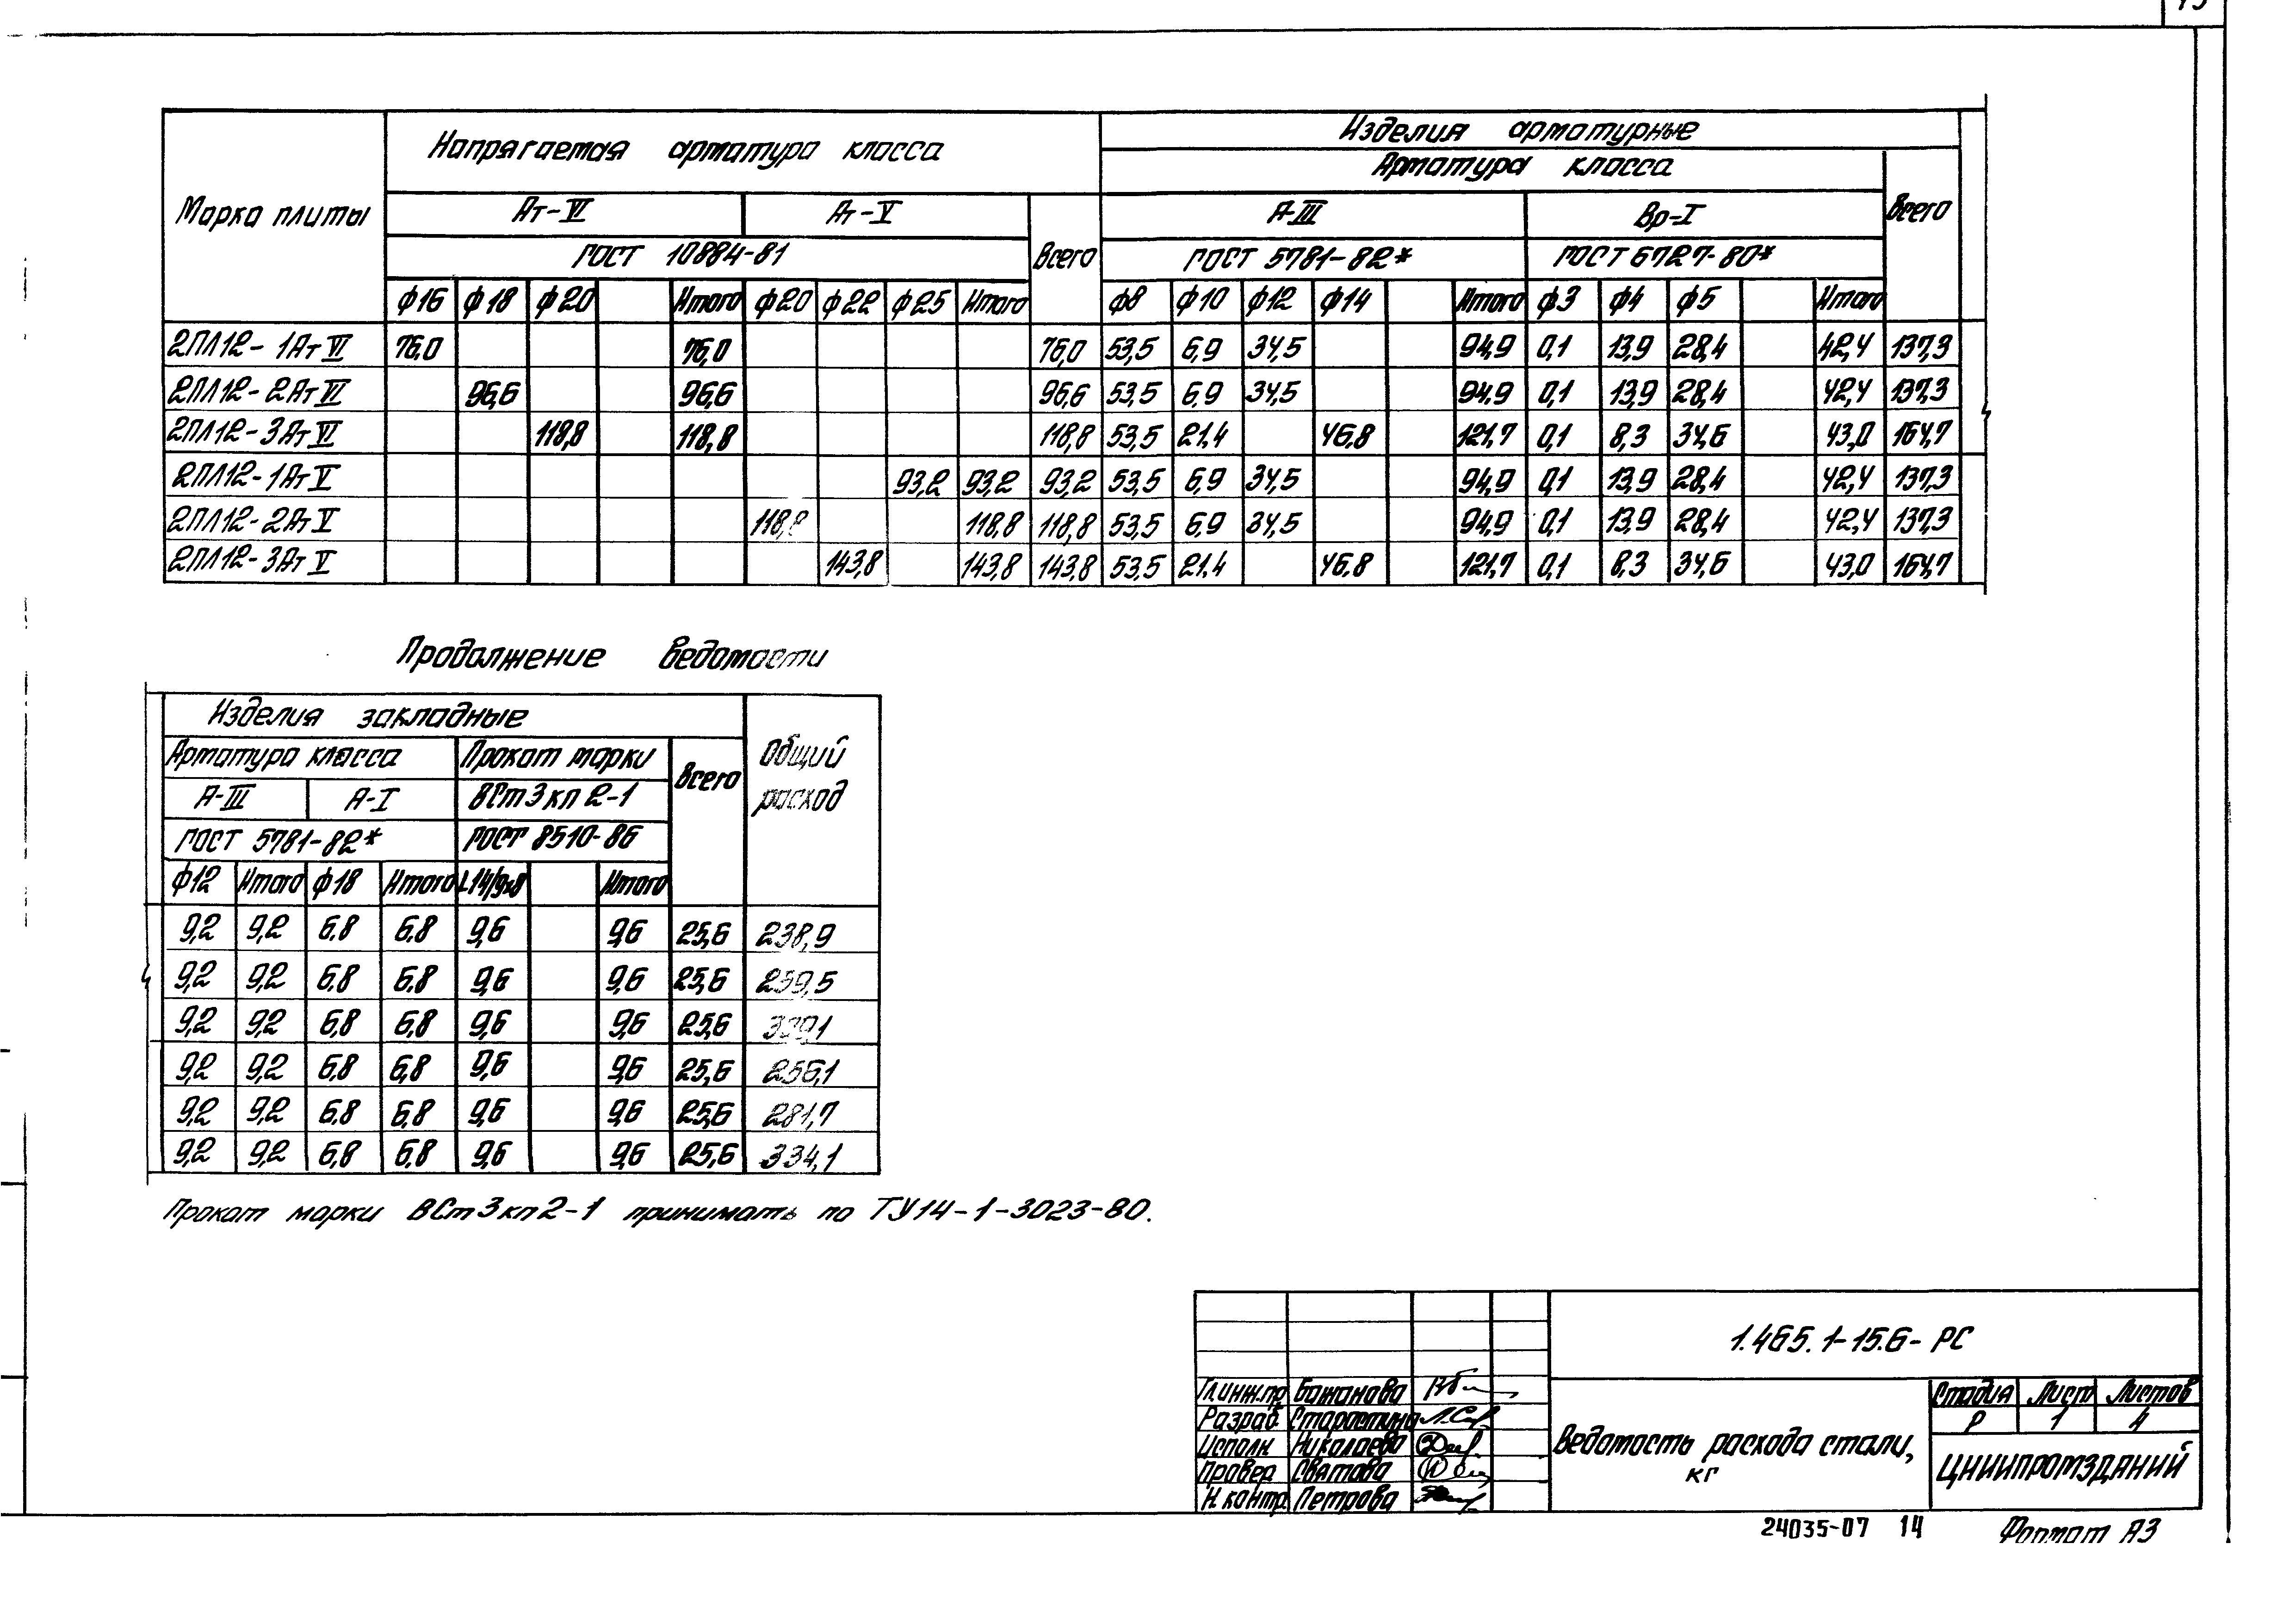 Марка плиты | Напрягаемая арматура класса | Изделия арматурные
Арматура класса
Ат-VI | Ат-V | Всего | А-III | Вр-I | Всего
ГОСТ 10884-81 | ГОСТ 5781-82* | ГОСТ 6727-80*
ф16 | ф18 | ф20 | Итого | ф20 | ф22 | ф25 | Итого | ф8 | ф10 | ф12 | ф14 | Итого | ф3 | ф4 | ф5 | Итого
2ПЛ12-1АтVI | 76,0 | 76,0 | 76,0 | 53,5 | 6,9 | 34,5 | 94,9 | 0,1 | 13,9 | 28,4 | 42,4 | 137,3
2ПЛ12-2АтVI | 96,6 | 96,6 | 96,6 | 53,5 | 6,9 | 34,5 | 94,9 | 0,1 | 13,9 | 28,4 | 42,4 | 137,3
2ПЛ12-3АтVI | 118,8 | 118,8 | 118,8 | 53,5 | 21,4 | 46,8 | 121,7 | 0,1 | 8,3 | 34,6 | 43,0 | 164,7
2ПЛ12-1АтV | 93,2 | 93,2 | 93,2 | 53,5 | 6,9 | 34,5 | 94,9 | 0,1 | 13,9 | 28,4 | 42,4 | 137,3
2ПЛ12-2АтV | 118,8 | 118,8 | 118,8 | 53,5 | 6,9 | 34,5 | 94,9 | 0,1 | 13,9 | 28,4 | 42,4 | 137,3
2ПЛ12-3АтV | 143,8 | 143,8 | 143,8 | 53,5 | 21,4 | 46,8 | 121,7 | 0,1 | 8,3 | 34,6 | 43,0 | 164,7
Продолжение ведомости
Изделия закладные | Общий расход
Арматура класса | Прокат марки | Всего
А-III | А-I | ВСт3кп2-1
ГОСТ 5781-82* | ГОСТ 8510-86
ф12 | Итого | ф18 | Итого | L14/9х8 | Итого
9,2 | 9,2 | 6,8 | 6,8 | 9,6 | 9,6 | 25,6 | 238,9
9,2 | 9,2 | 6,8 | 6,8 | 9,6 | 9,6 | 25,6 | 259,5
9,2 | 9,2 | 6,8 | 6,8 | 9,6 | 9,6 | 25,6
9,2 | 9,2 | 6,8 | 6,8 | 9,6 | 9,6 | 25,6 | 256,1
9,2 | 9,2 | 6,8 | 6,8 | 9,6 | 9,6 | 25,6 | 281,7
9,2 | 9,2 | 6,8 | 6,8 | 9,6 | 9,6 | 25,6 | 334,1
Прокат марки ВСт3кп2-1 принимать по ТУ14-1-3023-80.
1.465.1-15.6-РС
Гл.инж.пр. Бажанова
Разраб. Старостина
Исполн. Николаева
Провер. Святова
Н.контр. Петрова
Ведомость расхода стали, кг
Стадия | Лист | Листов
Р | 1 | 4
ЦНИИПРОМЗДАНИЙ
24035-07 14
Формат А3